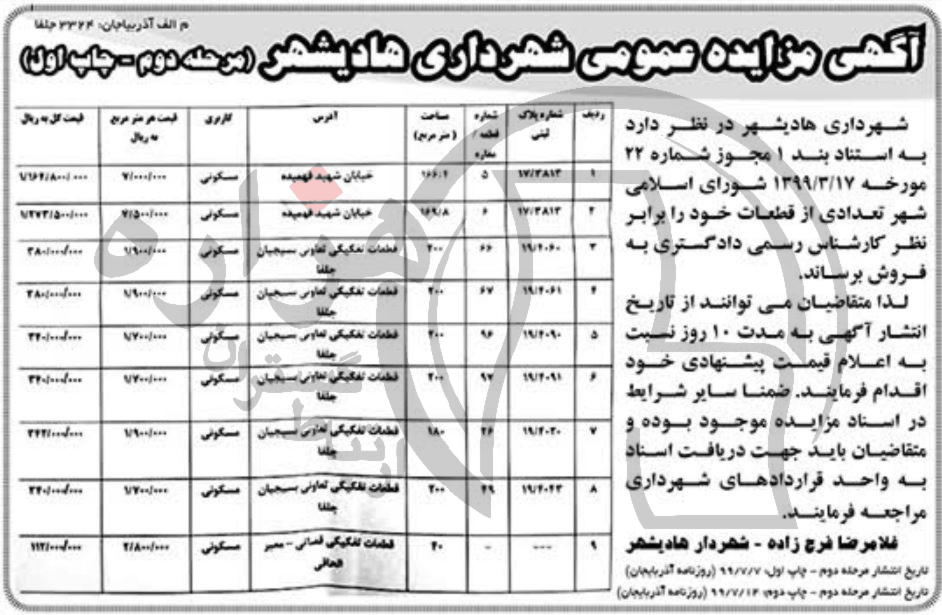 م الف آذربایجان: ۳۳۲۴ جلفا
آگهی مزایده عمومی شهرداری هادیشهر (مرحله دوم - چاپ اول)
شهرداری هادیشهر در نظر دارد
به استناد بند ۱ مجوز شماره ۲۲
مورخه ۱۳۹۹/۳/۱۷ شورای اسلامی
شهر تعدادی از قطعات خود را برابر
نظر کارشناس رسمی دادگستری به
فروش برساند.
لذا متقاضیان می توانند از تاریخ
انتشار آگهی به مدت ۱۰ روز نسبت
به اعلام قیمت پیشنهادی خود
اقدام فرمایند. ضمنا سایر شرایط
در اسناد مزایده موجود بوده و
متقاضیان باید جهت دریافت اسناد
به واحد قراردادهای شهرداری
مراجعه فرمایند.
غلامرضا فرج زاده - شهردار هادیشهر
تاریخ انتشار مرحله دوم - چاپ اول: ۹۹/۷/۷ (روزنامه آذربایجان)
تاریخ انتشار مرحله دوم - چاپ دوم: ۹۹/۷/۱۴ (روزنامه آذربایجان)
ردیف شماره پلاک ثبتی شماره قطعه / مغازه مساحت (متر مربع) آدرس کاربری قیمت هر متر مربع به ریال قیمت کل به ریال
۱ ۱۷/۳۸۱۳ ۵ ۱۶۶/۴ خیابان شهید فهمیده مسکونی ۷/۰۰۰/۰۰۰ ۱/۱۶۴/۸۰۰/۰۰۰
۲ ۱۷/۳۸۱۳ ۶ ۱۶۹/۸ خیابان شهید فهمیده مسکونی ۷/۵۰۰/۰۰۰ ۱/۲۷۳/۵۰۰/۰۰۰
۳ ۱۹/۴۰۶۰ ۶۶ ۲۰۰ قطعات تفکیکی تعاونی بسیجیان جلفا مسکونی ۱/۹۰۰/۰۰۰ ۳۸۰/۰۰۰/۰۰۰
۴ ۱۹/۴۰۶۱ ۶۷ ۲۰۰ قطعات تفکیکی تعاونی بسیجیان جلفا مسکونی ۱/۹۰۰/۰۰۰ ۳۸۰/۰۰۰/۰۰۰
۵ ۱۹/۴۰۹۰ ۹۶ ۲۰۰ قطعات تفکیکی تعاونی بسیجیان جلفا مسکونی ۱/۷۰۰/۰۰۰ ۳۴۰/۰۰۰/۰۰۰
۶ ۱۹/۴۰۹۱ ۹۷ ۲۰۰ قطعات تفکیکی تعاونی بسیجیان جلفا مسکونی ۱/۷۰۰/۰۰۰ ۳۴۰/۰۰۰/۰۰۰
۷ ۱۹/۴۰۲۰ ۲۶ ۱۸۰ قطعات تفکیکی تعاونی بسیجیان جلفا مسکونی ۱/۹۰۰/۰۰۰ ۳۴۲/۰۰۰/۰۰۰
۸ ۱۹/۴۰۴۳ ۴۹ ۲۰۰ قطعات تفکیکی تعاونی بسیجیان جلفا مسکونی ۱/۷۰۰/۰۰۰ ۳۴۰/۰۰۰/۰۰۰
۹ --- - ۴۰ قطعات تفکیکی قصابی - معبر الحاقی مسکونی ۲/۸۰۰/۰۰۰ ۱۱۲/۰۰۰/۰۰۰
هزاره